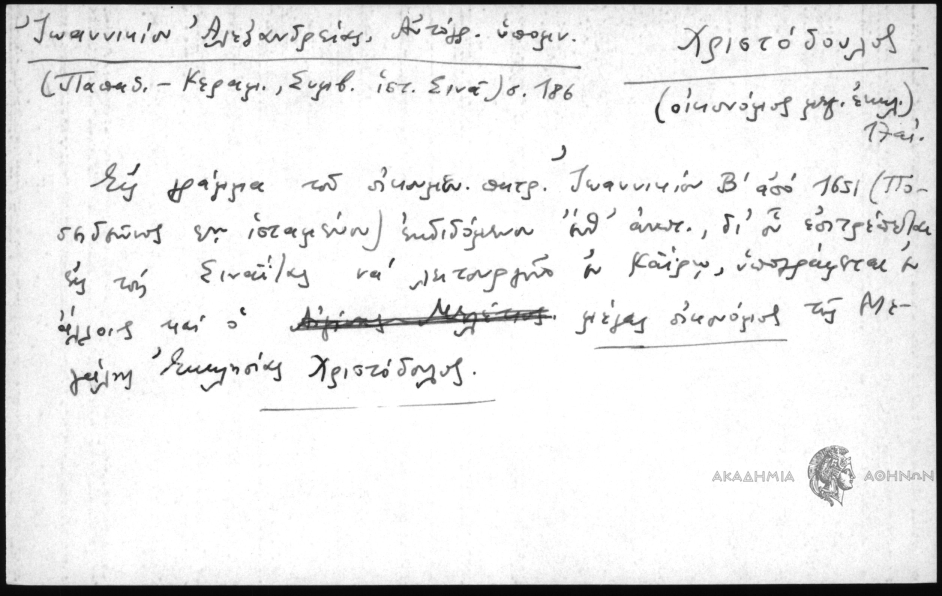 Ἰωαννικίου Ἀλεξανδρείας. Αὐτόγρ. ὑπόμν.
(Παπαδ. - Κεραμ., Συμβ. ἱστ. Σινᾶ) σ. 186
Χριστόδουλος
(οἰκονόμος μεγ. ἐκκλ.)
17 αἰ.
Εἰς γράμμα τοῦ οἰκουμεν. πατρ. Ἰωαννικίου Β' ἀπὸ 1651 (
ἱσταμένου) ἐκδιδόμενον ἐνθ' ἀνωτ., δι' οὗ ἐπιτρέπεται
εἰς τοὺς Σιναΐτας νὰ λειτουργοῦν ἐν Καΐρῳ, ὑπογράφεται ἐν
ἄλλοις καὶ ὁ μέγας οἰκονόμος τῆς Με-
γάλης Ἐκκλησίας Χριστόδουλος.
ΑΚΑΔΗΜΙΑ ΑΘΗΝΩΝ